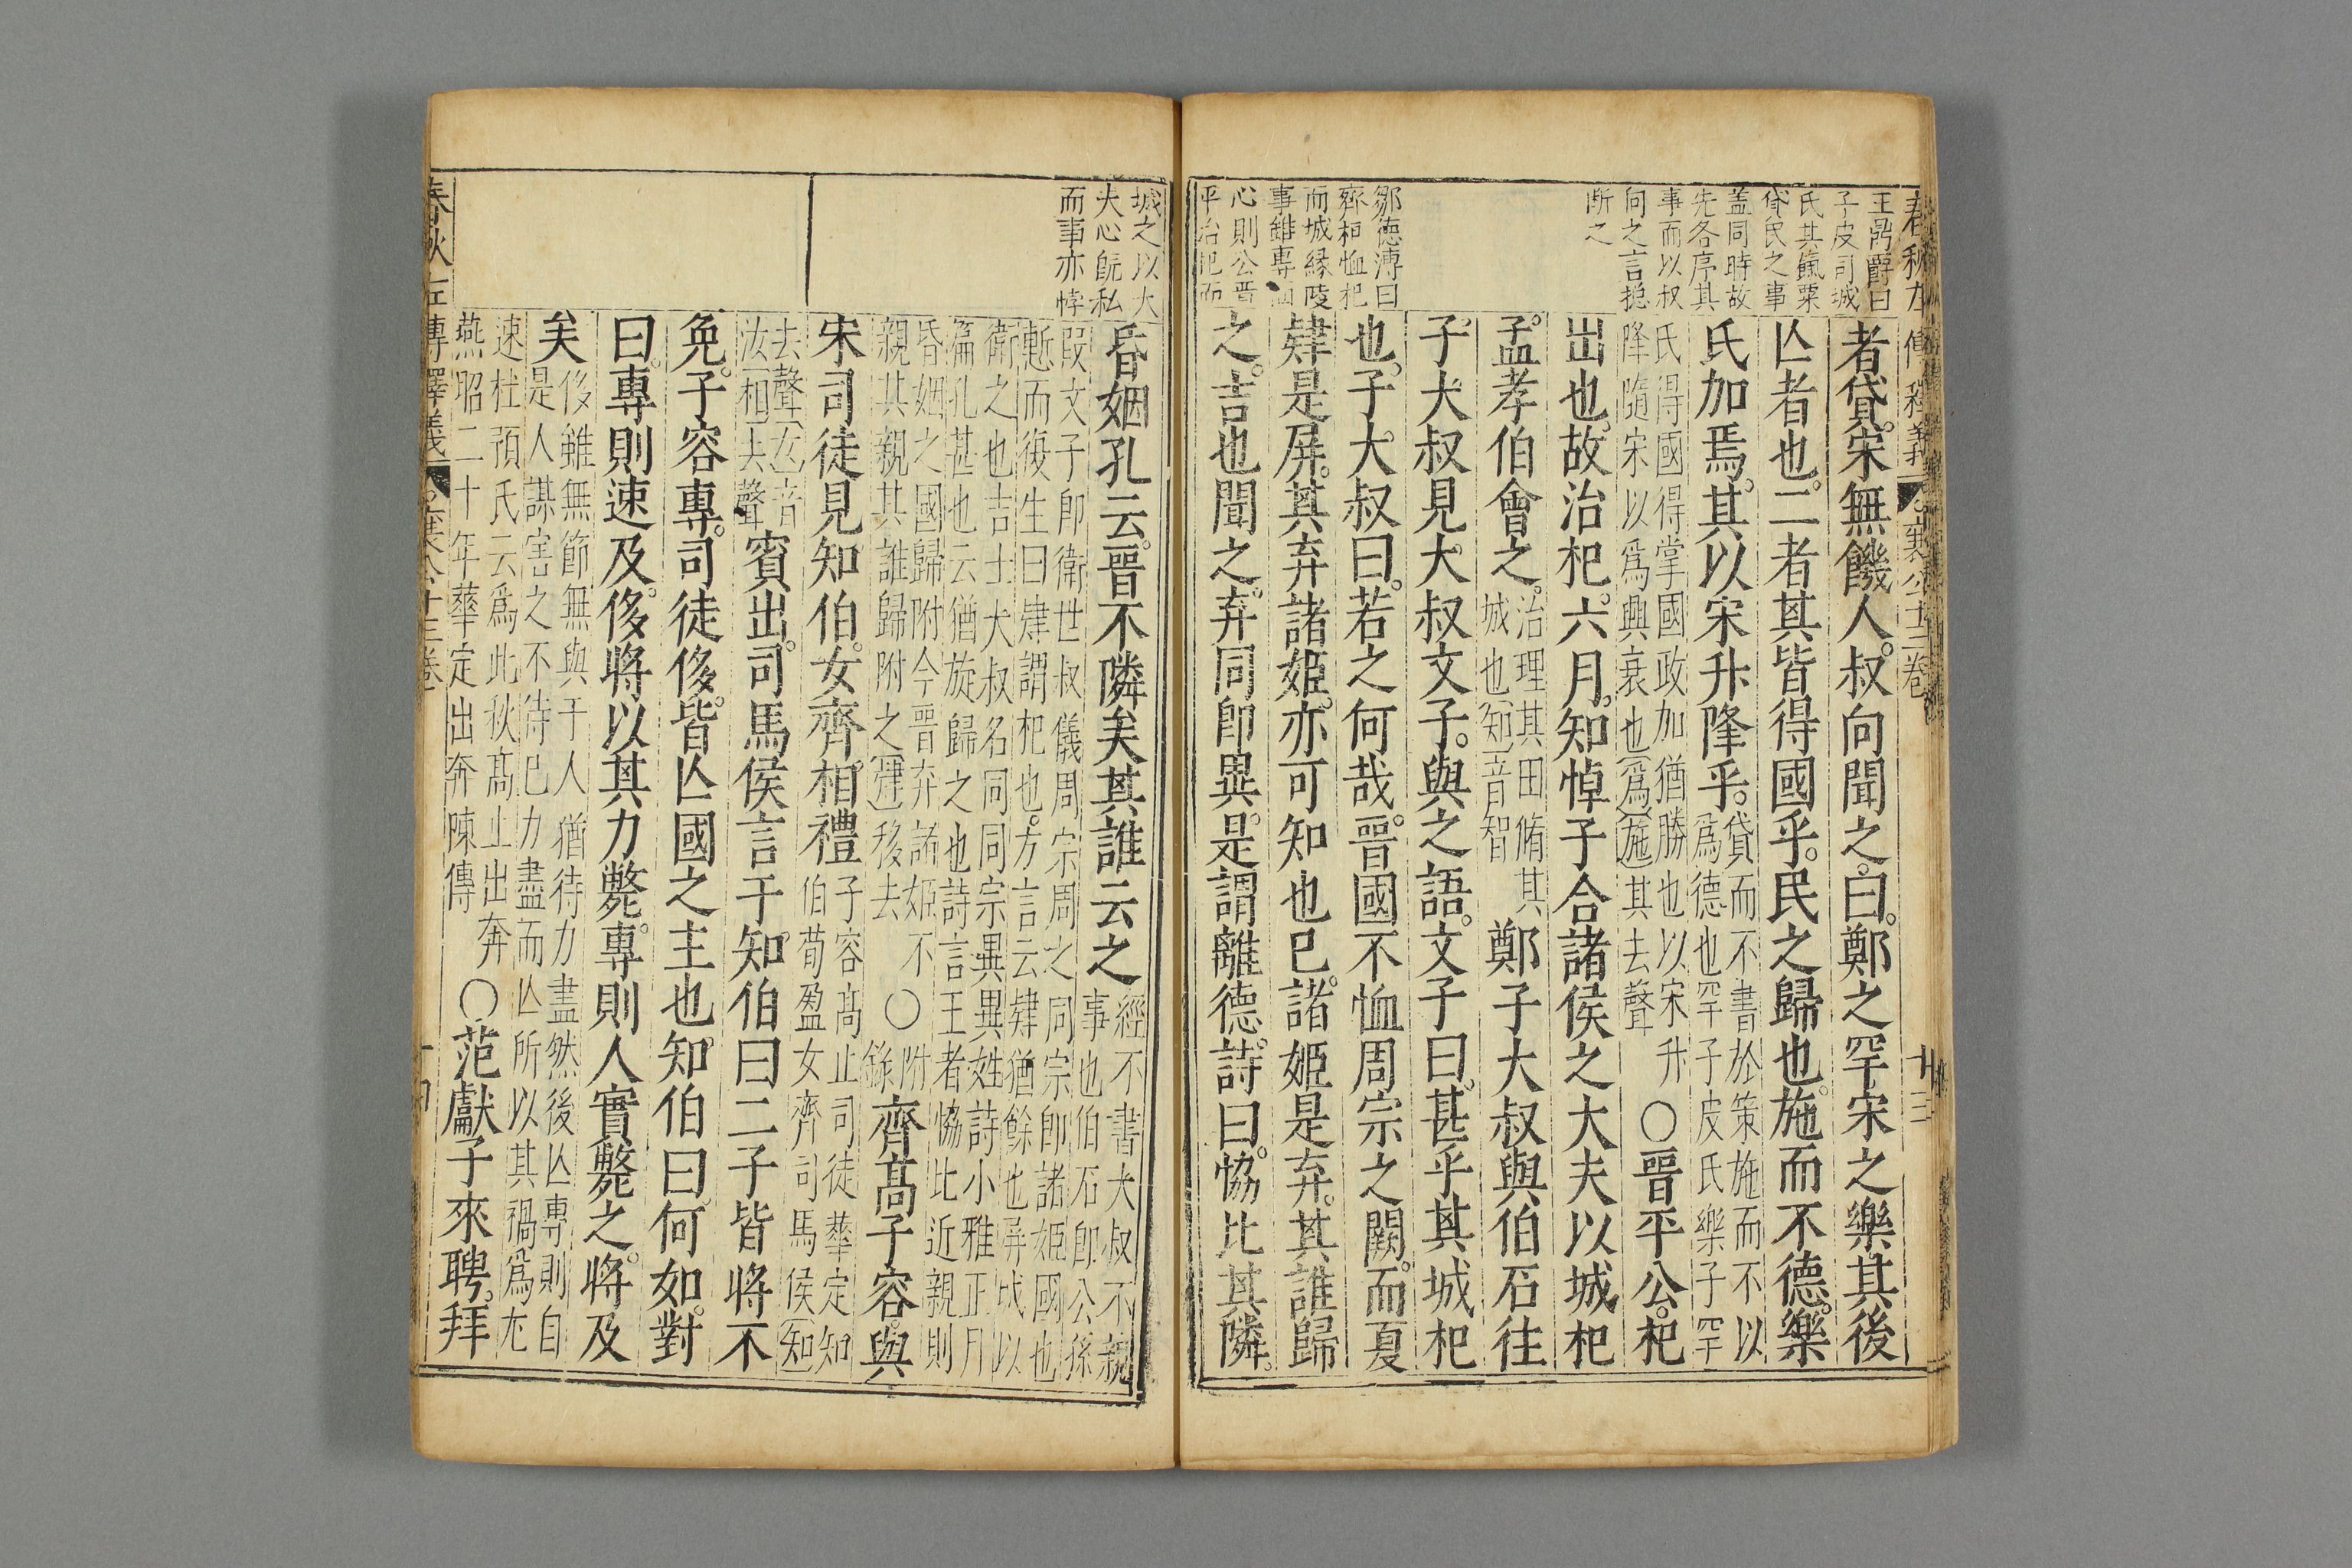 春秋左傳釋義 襄公十三卷 十三
王鼎爵曰
子皮司城
氏其餼粟
貸民之事
蓋同時故
先各序其
事而以叔
向之言捴
断之
鄒德溥曰
齊桓恤杞
而城緣陵
事雖專
心則公晋
平治杞而
者貸。宋無饑人。叔向聞之。曰。鄭之罕宋之樂其後
亾者也。二者其皆得國乎。民之歸也。施而不德。樂
氏加焉。其以宋升降乎。
貸而不書於策施而不以
爲德也罕子皮氏樂子罕
氏得國得掌國政加猶勝也以宋升
降隨宋以爲興衰也爲施其去聲
〇晋平公。杞
出也。故治杞。六月。知悼子合諸侯之大夫以城杞
孟孝伯會之。
治理其田脩其
城也知音智
鄭子大叔與伯石往
子大叔見大叔文子。與之語。文子曰。甚乎其城杞
也。子大叔曰。若之何哉。晋國不恤周宗之闕。而夏
肄是屏。其弃諸姬。亦可知也已。諸姬是弃。其誰歸
之。吉也聞之。弃同即異。是謂離德。詩曰。恊比其隣。
城之以大
夫心旣私
而事亦悖
昏姻孔云。晋不隣矣其誰云之
經不書大叔不親
事也伯石卽公孫
叚文子卽衛世叔儀周宗周之同宗卽諸姬國也
慙而復生曰肄謂杞也。方言云肄猶餘也屏城以
衛之也吉士大叔名同同宗異異姓詩小雅正月
篇孔甚也云猶旋歸之也詩言王者恊比近親則
昏姻之國歸附今晋弃諸姬不
親其親其誰歸附之肄移去
〇
附
錄
齊髙子容。與
宋司徒見知伯。女齊相禮
子容髙止司徒華定知
伯荀盈女齊司馬侯知
去聲女音
汝相去聲
賓出。司馬侯言于知伯曰二子皆將不
免。子容專。司徒侈。皆亾國之主也。知伯曰何如。對
曰。專則速及。侈將以其力斃。專則人實斃之。將及
矣
侈雖無節無與于人猶待力盡然後亾專則自
是人謀害之不待己力盡而亾所以其禍爲尤
速杜預氏云爲此秋髙止出奔
燕昭二十年華定出奔陳傳
〇范獻子來聘。拜
春秋左傳釋義 襄公十三卷 十四